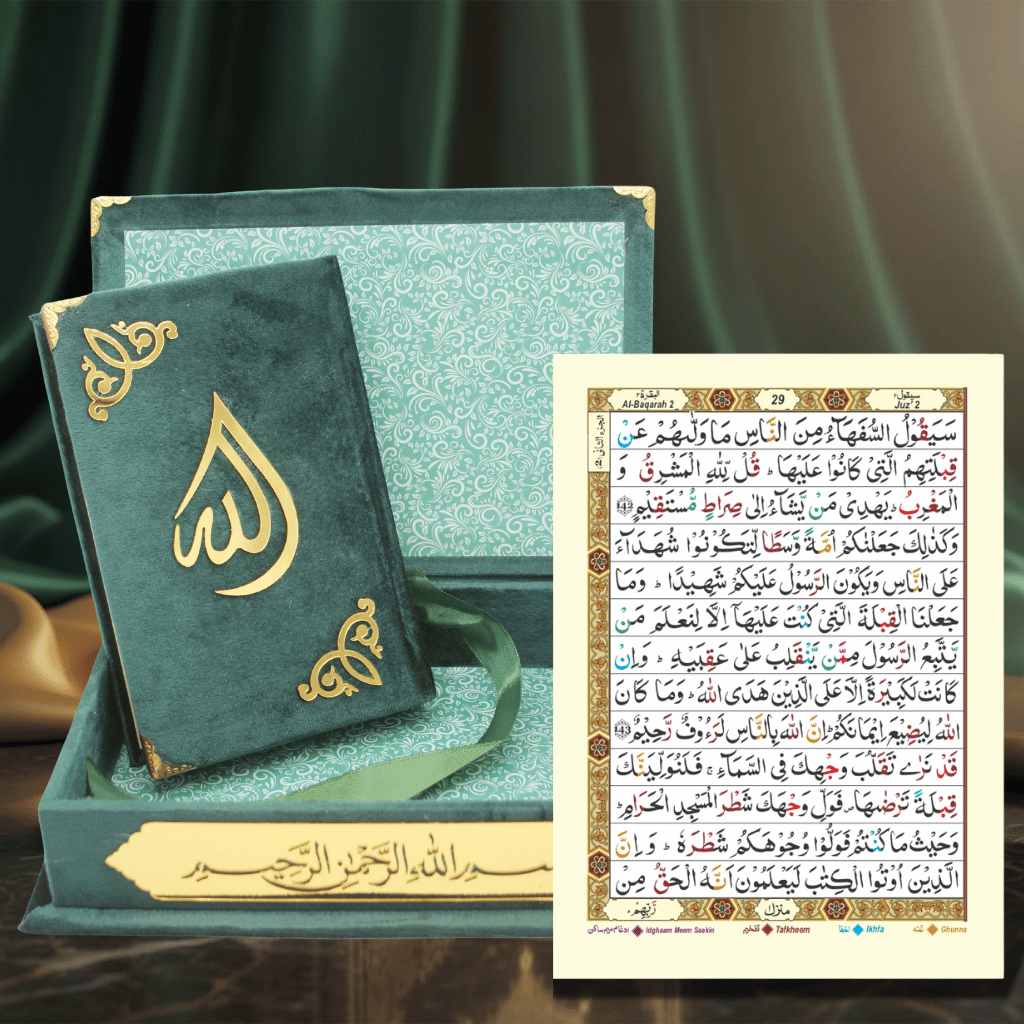 الله
بسم الله الرحمن الرحيم
البقرة ٢
Al-Baqarah 2
29
سيقول ٢
Juz' 2
الجزء الثاني (٢)
سَيَقُوْلُ السُّفَهَآءُ مِنَ النَّاسِ مَا وَلّٰىهُمْ عَنْ
قِبْلَتِهِمُ الَّتِىْ كَانُوْا عَلَيْهَا ؕ قُلْ لِّلّٰهِ الْمَشْرِقُ وَ
الْمَغْرِبُ ؕ يَهْدِىْ مَنْ يَّشَآءُ اِلٰى صِرَاطٍ مُّسْتَقِيْمٍ ۝142
وَكَذٰلِكَ جَعَلْنٰكُمْ اُمَّةً وَّسَطًا لِّتَكُوْنُوْا شُهَدَآءَ
عَلَى النَّاسِ وَيَكُوْنَ الرَّسُوْلُ عَلَيْكُمْ شَهِيْدًا ؕ وَمَا
جَعَلْنَا الْقِبْلَةَ الَّتِىْ كُنْتَ عَلَيْهَآ اِلَّا لِنَعْلَمَ مَنْ
يَّتَّبِعُ الرَّسُوْلَ مِمَّنْ يَّنْقَلِبُ عَلٰى عَقِبَيْهِ ؕ وَاِنْ
كَانَتْ لَكَبِيْرَةً اِلَّا عَلَى الَّذِيْنَ هَدَى اللّٰهُ ؕ وَمَا كَانَ
اللّٰهُ لِيُضِيْعَ اِيْمَانَكُمْ ؕ اِنَّ اللّٰهَ بِالنَّاسِ لَرَءُوْفٌ رَّحِيْمٌ ۝143
قَدْ نَرٰى تَقَلُّبَ وَجْهِكَ فِى السَّمَآءِ ۚ فَلَنُوَلِّيَنَّكَ
قِبْلَةً تَرْضٰىهَا ۪ فَوَلِّ وَجْهَكَ شَطْرَ الْمَسْجِدِ الْحَرَامِ ؕ
وَحَيْثُ مَا كُنْتُمْ فَوَلُّوْا وُجُوْهَكُمْ شَطْرَهٗ ؕ وَاِنَّ
الَّذِيْنَ اُوْتُوا الْكِتٰبَ لَيَعْلَمُوْنَ اَنَّهُ الْحَقُّ مِنْ
رَّبِّهِمْ ؕ
منزل
ادغام میم ساکن Idghaam Meem Saakin
تفخیم Tafkheem
اخفا Ikhfa
غنه Ghunna